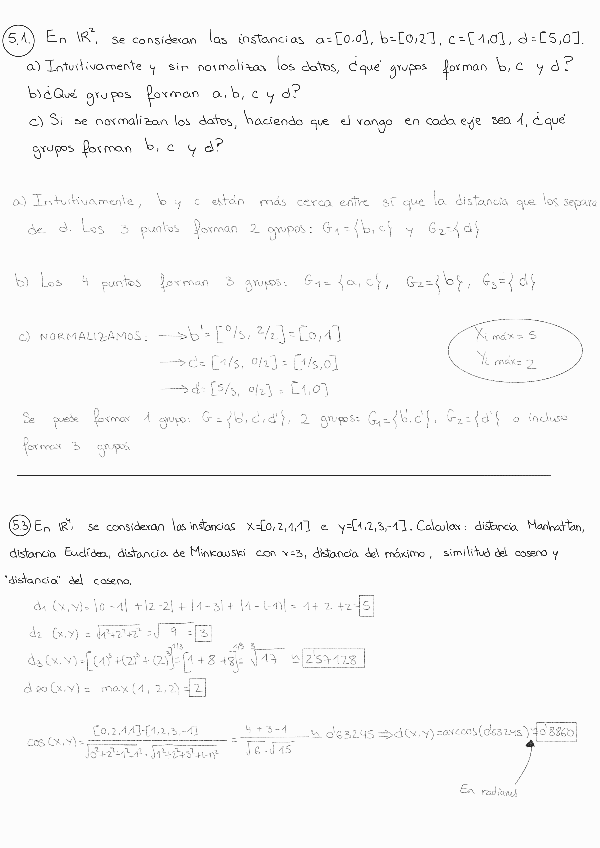 5.1. En IR², se consideran las instancias a=[0,0], b=[0,2], c=[1,0], d=[5,0].
a) Intuitivamente y sin normalizar los datos, ¿qué grupos forman b, c y d?
b) ¿Qué grupos forman a, b, c y d?
c) Si se normalizan los datos, haciendo que el rango en cada eje sea 1, ¿qué
grupos forman b, c y d?
a) Intuitivamente, b y c están más cerca entre sí que la distancia que los separa
de d. Los 3 puntos forman 2 grupos: G₁={b,c} y G₂={d}
b) Los 4 puntos forman 3 grupos: G₁={a,c}, G₂={b}, G₃={d}
c) NORMALIZAMOS. → b'=[0/5, 2/2]=[0,1]
X₁ máx = 5
→ c'=[1/5, 0/2]=[1/5,0]
X₂ máx = 2
→ d'=[5/5, 0/2]=[1,0]
Se puede formar 1 grupo: G={b',c',d'}, 2 grupos: G₁={b',c'}, G₂={d'} o incluso
formar 3 grupos
5.3 En IR⁴, se consideran las instancias x=[0,2,1,1] e y=[1,2,3,-1]. Calcular: distancia Manhattan,
distancia Euclídea, distancia de Minkowski con r=3, distancia del máximo, similitud del coseno y
"distancia" del coseno.
d₁(x,y)=|0-1|+|2-2|+|1-3|+|1-(-1)|=1+2+2=5
d₂(x,y)=√1²+2²+2²=√9=3
d₃(x,y)=[(1)³+(2)³+(2)³]^1/3=[1+8+8]^1/3=³√17≈2'57128
d∞(x,y)=max(1,2,2)=2
cos(x,y)=[0,2,1,1]·[1,2,3,-1]/√0²+2²+1²+1²·√1²+2²+3²+(-1)²=4+3-1/√6·√15≈0'63245⇒d(x,y)=arccos(0'63245)=0'8860
En radianes